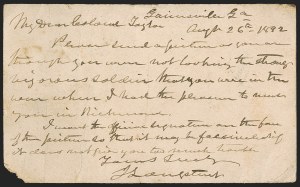 Gainesville Ga
My Dear Colonel Taylor Augt 26th 1892
Please send a picture as you are
though you were not looking the strong
vigorous soldier that you were in the
war when I had the pleasure to
you in Richmond.
I want the signature on the face
of the picture so that it may be facsimiled if
it does not give you too much trouble
Yours Truly
J Longstreet